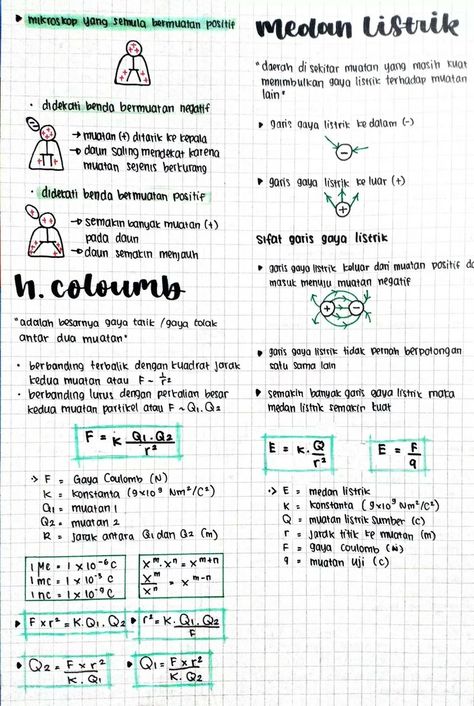 ▸ mikroskop yang semula bermuatan positif
• didekati benda bermuatan negatif
→ muatan (+) ditarik ke kepala
→ daun saling mendekat karena
muatan sejenis berkurang
• didekati benda bermuatan positif
→ semakin banyak muatan (+)
pada daun
→ daun semakin menjauh
h. coloumb
"adalah besarnya gaya tarik /gaya tolak
antar dua muatan"
• berbanding terbalik dengan kuadrat jarak
kedua muatan atau F ~ 1/r²
• berbanding lurus dengan perkalian besar
kedua muatan partikel atau F ~ Q₁.Q₂
F = K Q₁.Q₂/r²
-> F = Gaya Coulomb (N)
K = konstanta (9x10⁹ Nm²/C²)
Q₁ = muatan 1
Q₂ = muatan 2
R = jarak antara Q₁ dan Q₂ (m)
1 μc = 1 x 10⁻⁶ C
1 mc = 1 x 10⁻³ C
1 nc = 1 x 10⁻⁹ C
xᵐ.xⁿ = xᵐ⁺ⁿ
xᵐ/xⁿ = xᵐ⁻ⁿ
▸ F x r² = K.Q₁.Q₂
▸ r² = K.Q₁.Q₂/F
▸ Q₂ = F x r²/K.Q₁
▸ Q₁ = F x r²/K.Q₂
medan listrik
"daerah di sekitar muatan yang masih kuat
menimbulkan gaya listrik terhadap muatan
lain"
▸ garis gaya listrik ke dalam (-)
▸ garis gaya listrik ke luar (+)
Sifat garis gaya listrik
▸ garis gaya listrik keluar dari muatan positif da
masuk menuju muatan negatif
▸ garis gaya listrik tidak pernah berpotongan
satu sama lain
▸ semakin banyak garis gaya listrik maka
medan listrik semakin kuat
E = K.Q/r²
E = F/q
-> E = medan listrik
K = konstanta (9x10⁹ Nm²/C²)
Q = muatan listrik sumber (c)
r = jarak titik ke muatan (m)
F = gaya coulomb (N)
q = muatan uji (c)